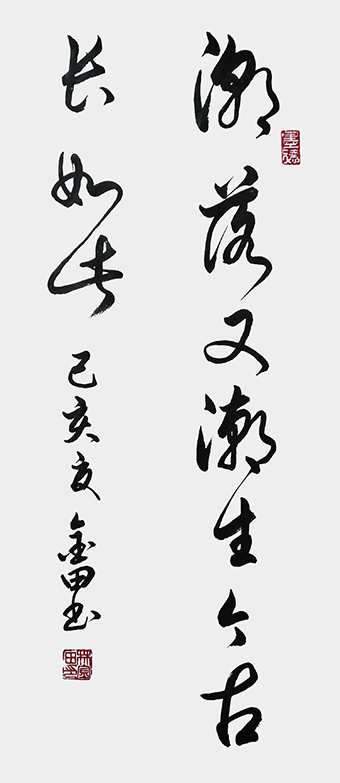 潮落又潮生今古
长如此 己亥夏 金田书